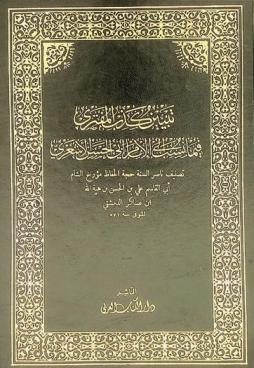 تبيين كذب المفتري
فيما نسب إلى الإمام أبي الحسن الأشعري
تصنيف ناصر السنة حجة الحفاظ مؤرخ الشام
أبي القاسم علي بن الحسن بن هبة الله
ابن عساكر الدمشقي
المتوفى سنة ٥٧١
الناشر
دار الكتاب العربي